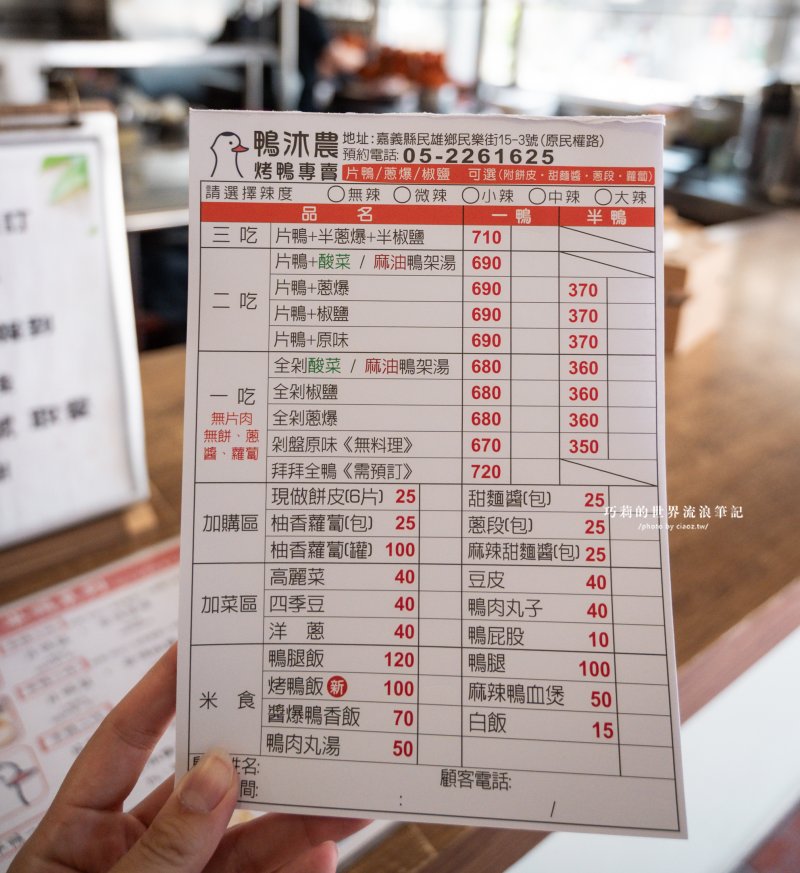 鴨沐農
烤鴨專賣
地址:嘉義縣民雄鄉民樂街15-3號(原民權路)
預約電話: 05-2261625
片鴨/蔥爆/椒鹽 可選(附餅皮·甜麵醬·蔥段·蘿蔔)
請選擇辣度 ○無辣 ○微辣 ○小辣 ○中辣 ○大辣
品名 一鴨 半鴨
三吃 片鴨+半蔥爆+半椒鹽 710
二吃
片鴨+酸菜 / 麻油鴨架湯 690
片鴨+蔥爆 690 370
片鴨+椒鹽 690 370
片鴨+原味 690 370
一吃
無片肉
無餅、蔥
醬、蘿蔔
全剁酸菜 / 麻油鴨架湯 680 360
全剁椒鹽 680 360
全剁蔥爆 680 360
剁盤原味《無料理》 670 350
拜拜全鴨《需預訂》 720
加購區
現做餅皮(6片) 25 甜麵醬(包) 25
柚香蘿蔔(包) 25 蔥段(包) 25
柚香蘿蔔(罐) 100 麻辣甜麵醬(包) 25
加菜區
高麗菜 40 豆皮 40
四季豆 40 鴨肉丸子 40
洋蔥 40 鴨屁股 10
米食
鴨腿飯 120 鴨腿 100
烤鴨飯 新 100 麻辣鴨血煲 50
醬爆鴨香飯 70 白飯 15
鴨肉丸湯 50
姓名: 顧客電話:
間: : /
巧莉的世界流浪筆記
/photo by ciaoz.tw/